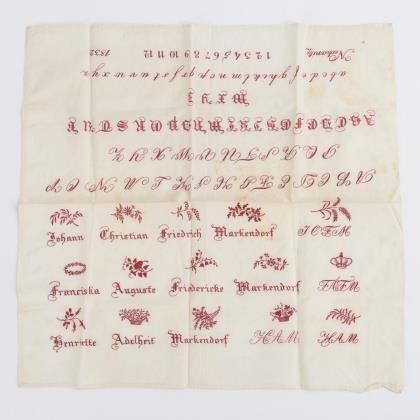 A B C D E F G H I K L M N O P
Q R S T U V W X Y Z
W X Y Z
a b c d e f g h i k l m n o p q r s t u v w x y z
1 2 3 4 5 6 7 8 9 10 11 12 1832
Johann Christian Friedrich Markendorf I C F M
Franciska Auguste Friedericke Markendorf FAFM
Henriette Adelheit Markendorf HAM HAM